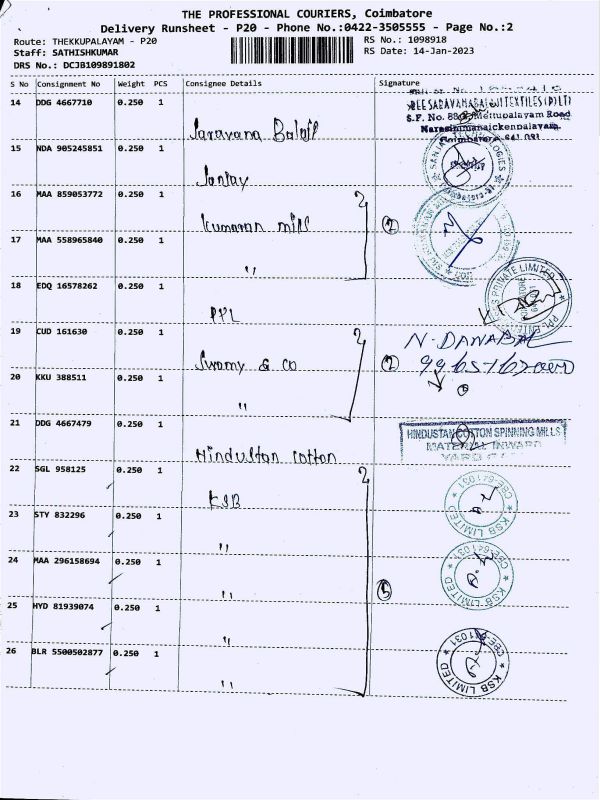 THE PROFESSIONAL COURIERS, Coimbatore
Delivery Runsheet - P20 - Phone No.:0422-3505555 - Page No.:2
Route: THEKKUPALAYAM - P20
Staff: SATHISHKUMAR
DRS No.: DCJB109891802
RS No.: 1098918
RS Date: 14-Jan-2023
S No Consignment No Weight PCS Consignee Details Signature
14 DDG 4667710 0.250 1 Saravana Balaji
S.F. No. Mettupalayam Road
Narasimmanaickenpalayam,
15 NDA 905245851 0.250 1 Sanjay
16 MAA 859053772 0.250 1 Kumaran mills 2
17 MAA 558965840 0.250 1 "
18 EDQ 16578262 0.250 1 PPL
PRIVATE LIMITED
19 CUD 161630 0.250 1 Swamy & co 2
N. DANABAL
20 KKU 388511 0.250 1 "
21 DDG 4667479 0.250 1 Hindustan Cotton
HINDUSTAN COTTON SPINNING MILLS
MATERIAL INWARD
22 SGL 958125 0.250 1 KSB
KSB LIMITED CBE-641031
23 STY 832296 0.250 1 "
24 MAA 296158694 0.250 1 " 5
KSB LIMITED CBE-641031
25 HYD 81939074 0.250 1 "
26 BLR 5500502877 0.250 1 "
KSB LIMITED CBE-641031